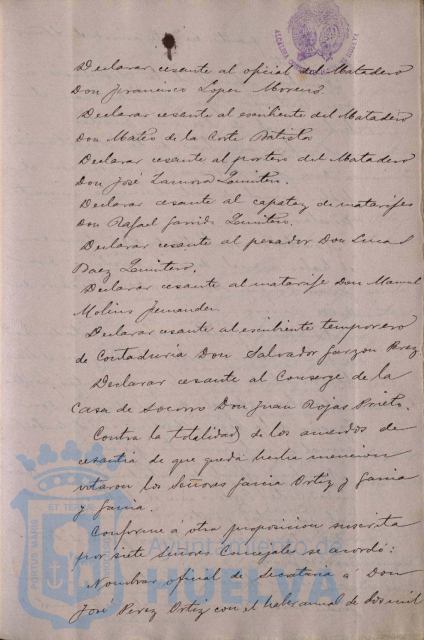 Declarar cesante al oficial del Matadero
Don Francisco Lopez Moreno
Declarar cesante al escribiente del Matadero
Don Mateo de la Corte Batista
Declarar cesante al portero del Matadero
Don José Zamora Quintero.
Declarar cesante al capataz de matarifes
Don Rafael Garrido Quintero.
Declarar cesante al pesador Don
Baez Quintero.
Declarar cesante al matarife Don Manuel
Molins Fernandez
Declarar cesante al escribiente temporero
de Contaduria Don Salvador Garzon Perez
Declarar cesante al Conserge de la
Casa de Socorro Don Juan Rojas Prieto.
Contra la totalidad de los acuerdos de
cesantia de que queda hecha mencion
votaron los Señores Garcia Ortiz y Garcia
y Garcia.
Conforme a otra proposicion suscrita
por siete Señores Concejales se acordó:
Nombrar oficial de Secretaria a Don
José Perez Ortiz con el haber anual de dos mil
PORTUS MARIS
ET TERRAE
Ayuntamiento de
HUELVA